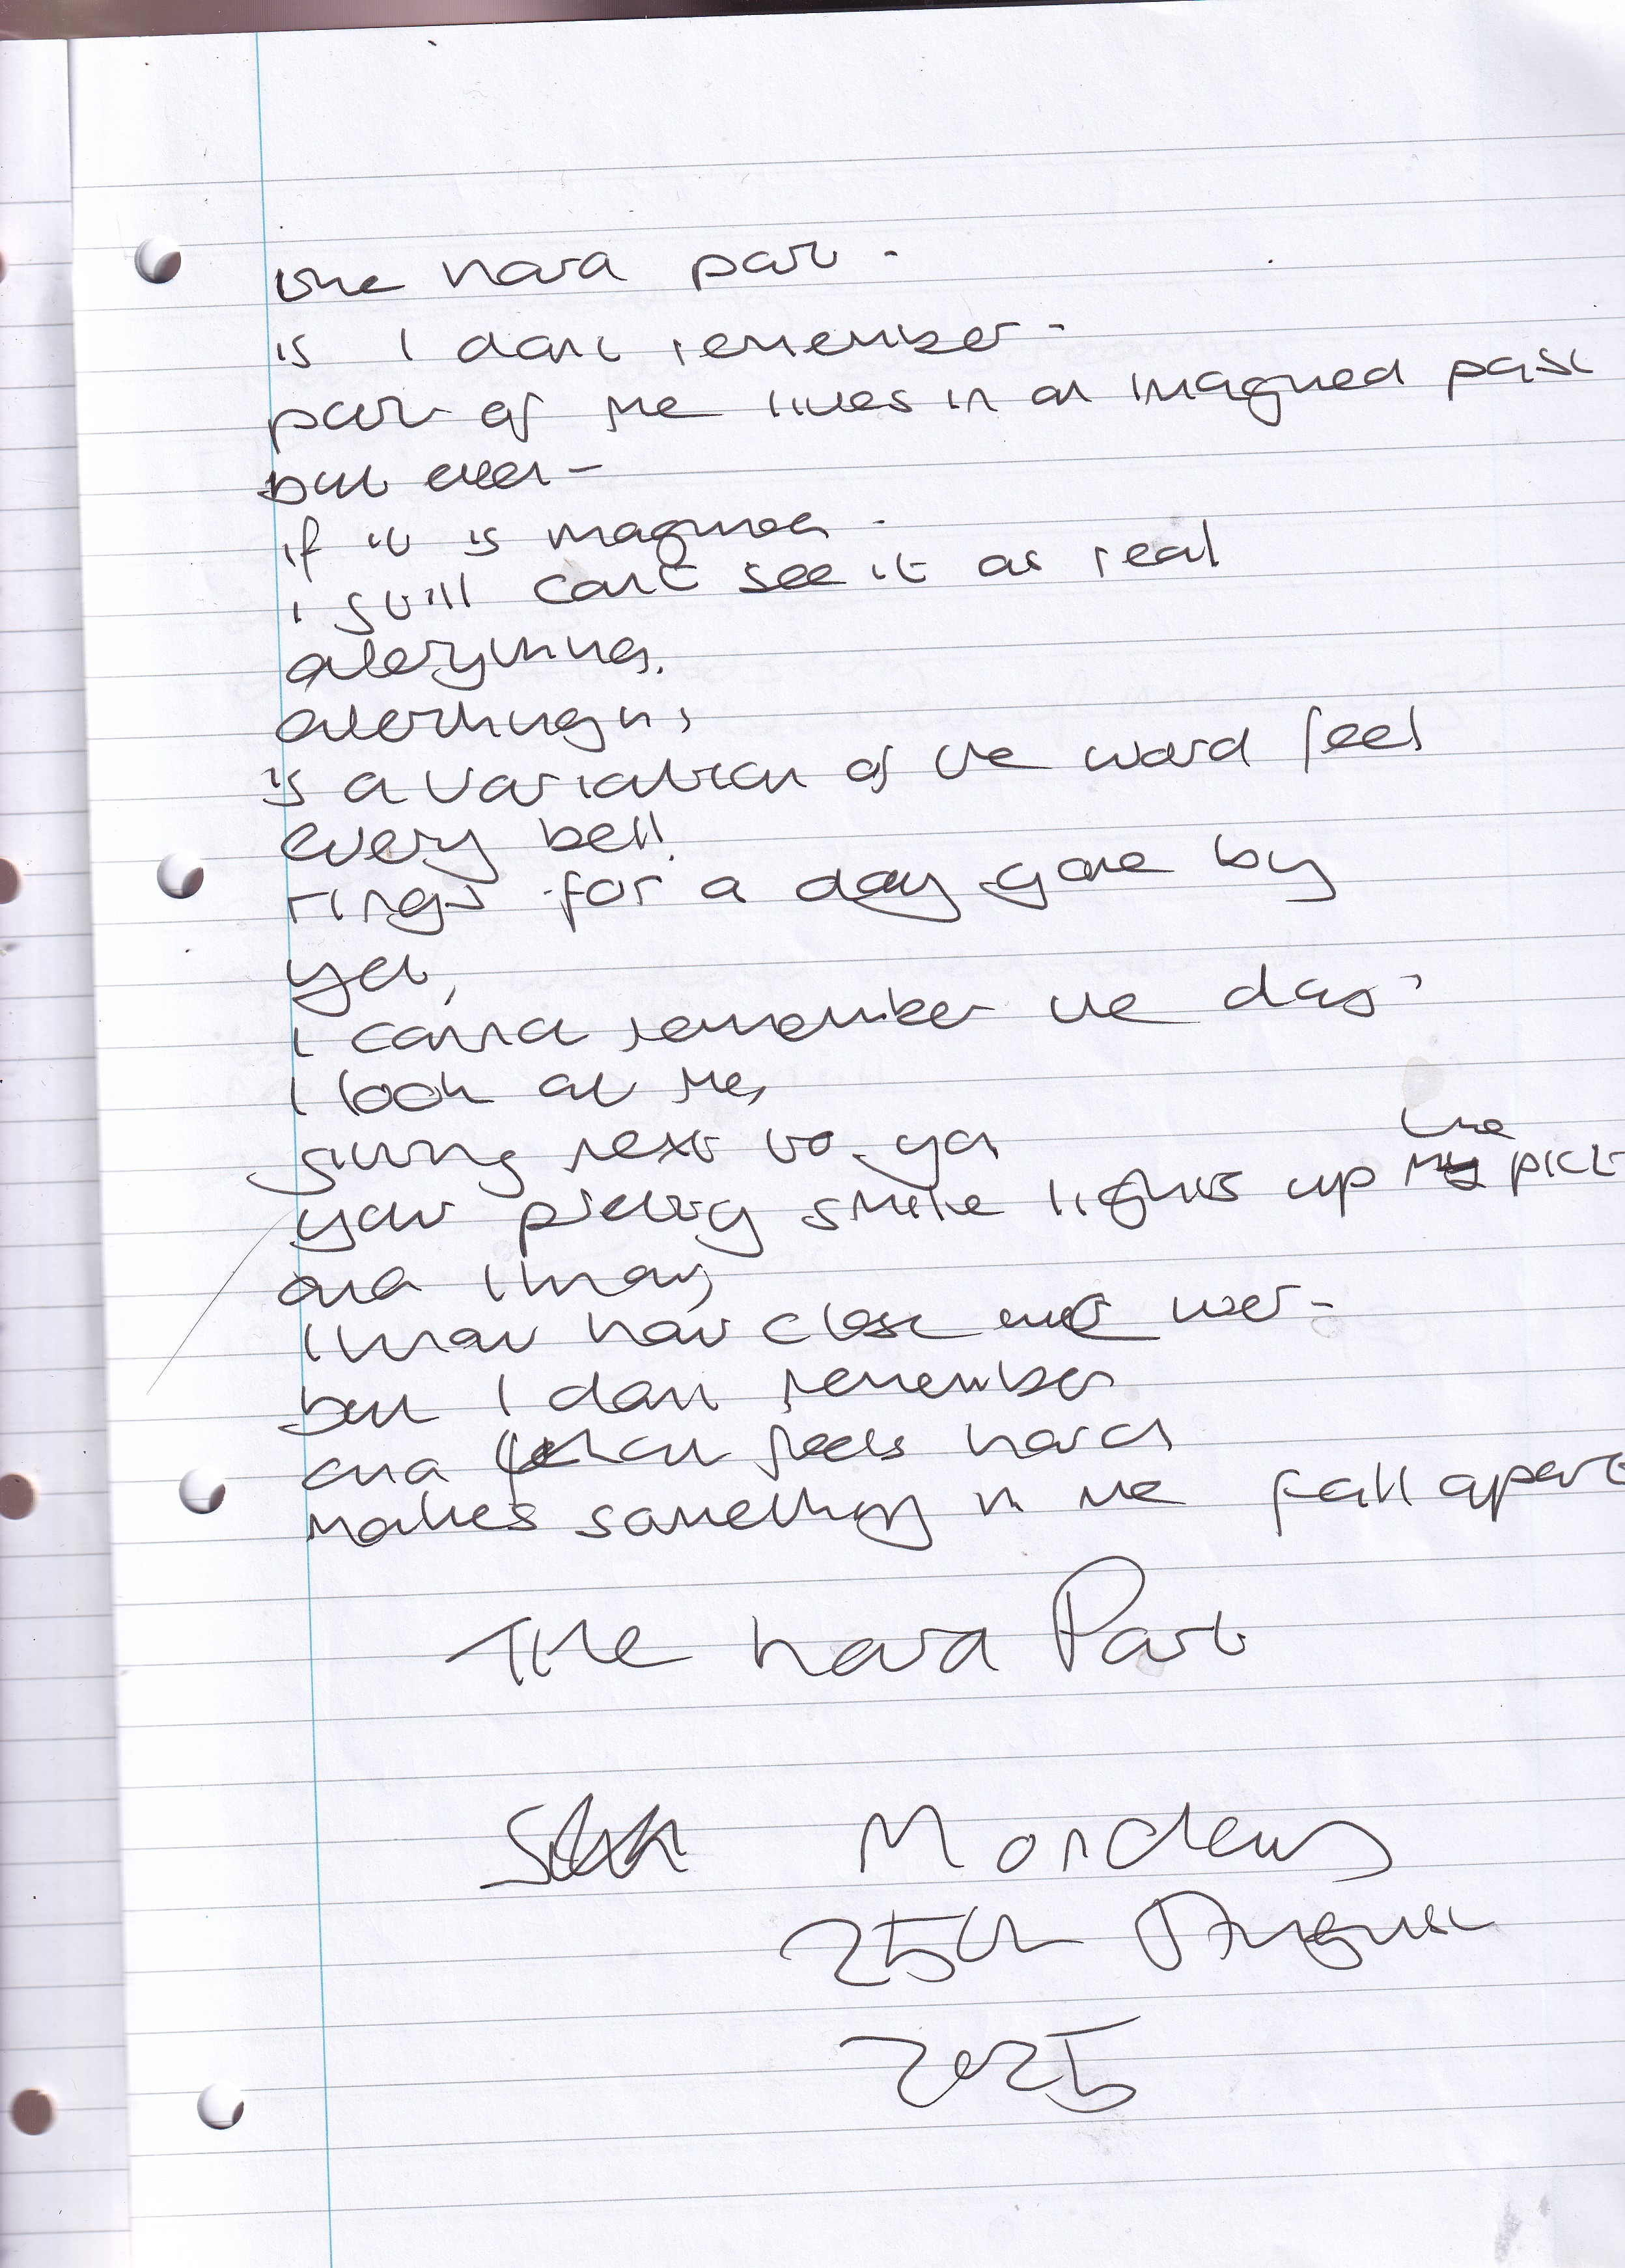 the hard part -
is I don't remember -
part of me lives in an imagined past
but even -
if it is imagined -
i still can't see it as real
everything
everything is
is a variation of the word feel
every bell
rings for a day gone by
yet,
I cannot remember the days
I look at me,
sitting next to you
your smile lights up the pict
and I know,
I know how close we were -
but I don't remember
and that feels hard
makes something in me fall apart
The hard Part
Monday
25th August
2025